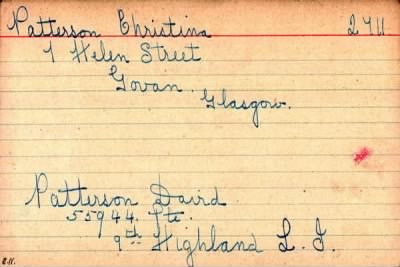 Patterson Christina 2711
1 Helen Street
Govan.
Glasgow.
Patterson David.
55944. Pte.
9th Highland L. I.
E.H.